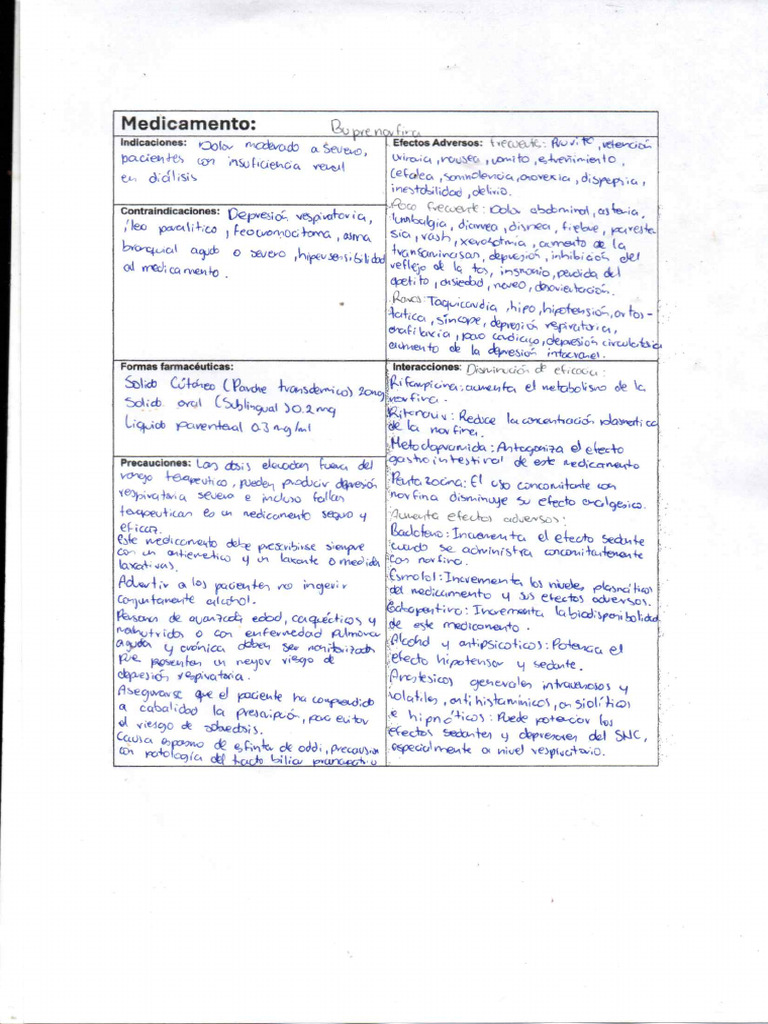 Medicamento: Buprenorfina
Indicaciones: Dolor moderado a severo,
pacientes con insuficiencia renal
en diálisis
Contraindicaciones: Depresión respiratoria,
íleo paralitico, feocromocitoma, asma
bronquial agudo o severo, hipersensibilidad
al medicamento.
Formas farmacéuticas:
Solido Cútáneo (Parche transdérmico) 20mg
Solido oral (Sublingual) 0.2 mg
Liquido parenteral 0.3 mg/ml
Precauciones: Las dosis elevadas fuera del
rango terapeutico, pueden producir depresión
respiratoria severa e incluso fallas
terapeuticas es un medicamento seguro y
eficaz.
Este medicamento debe prescribirse siempre
con un antiemetico y un laxante o medidas
laxativas.
Advertir a los pacientes no ingerir
conjuntamente alcohol.
Personas de avanzada edad, caquécticos y
malnutridos o con enfermedad pulmonar
aguda y crónica deben ser monitorizados
pues presentan un mayor riesgo de
depresión respiratoria.
Asegurarse que el paciente ha comprendido
a cabalidad la prescripción, para evitar
el riesgo de sobredosis.
Causa espasmo de esfinter de oddi, precausion
con patología del tracto biliar
Efectos Adversos: Frecuente: Prurito, retención
uriraria, nausea, vomito, estreñimiento,
cefalea, somnolencia, anorexia, dispepsia,
inestabilidad, delirio.
Poco frecuente: Dolor abdominal, astenia,
lumbalgia, diarrea, disnea, fiebre, pareste
sia, rash, xerostomia, aumento de la
transaminasas, depresión, inhibición del
reflejo de la tos, insmonio, perdida del
apetito, ansiedad, mareo, desorientación.
Raros: Taquicardia, hipo, hipotensión, ortos-
tatica, síncope, depresión respiratoria,
anafilaxia, paro cardíaco, depresión circulatoria
aumento de la depresión intracranel.
Interacciones: Disminución de eficacia:
Rifampicina: aumenta el metabolismo de la
norfina.
Ritonavir: Reduce la concentración plasmatica
de la norfina.
Metoclopramida: Antagoniza el efecto
gastrointestinal de este medicamento
Pentazocina: El uso concomitante con
norfina disminuye su efecto analgésico.
Aumenta efectos adversos:
Baclofeno: Incrementa el efecto sedante
cuando se administra concomitantemente
con norfina.
Esmolol: Incrementa los niveles plasmáticos
del medicamento y sus efectos adversos.
Incrementa la biodisponibilidad
de este medicamento.
Alcohol y antipsicoticos: Potencia el
efecto hipotensor y sedante.
Anestesicos generales intravenosos y
volatiles, antihistamínicos, ansiolíticos
e hipnóticos: Puede potenciar los
efectos sedantes y depresores del SNC,
especialmente a nivel respiratorio.